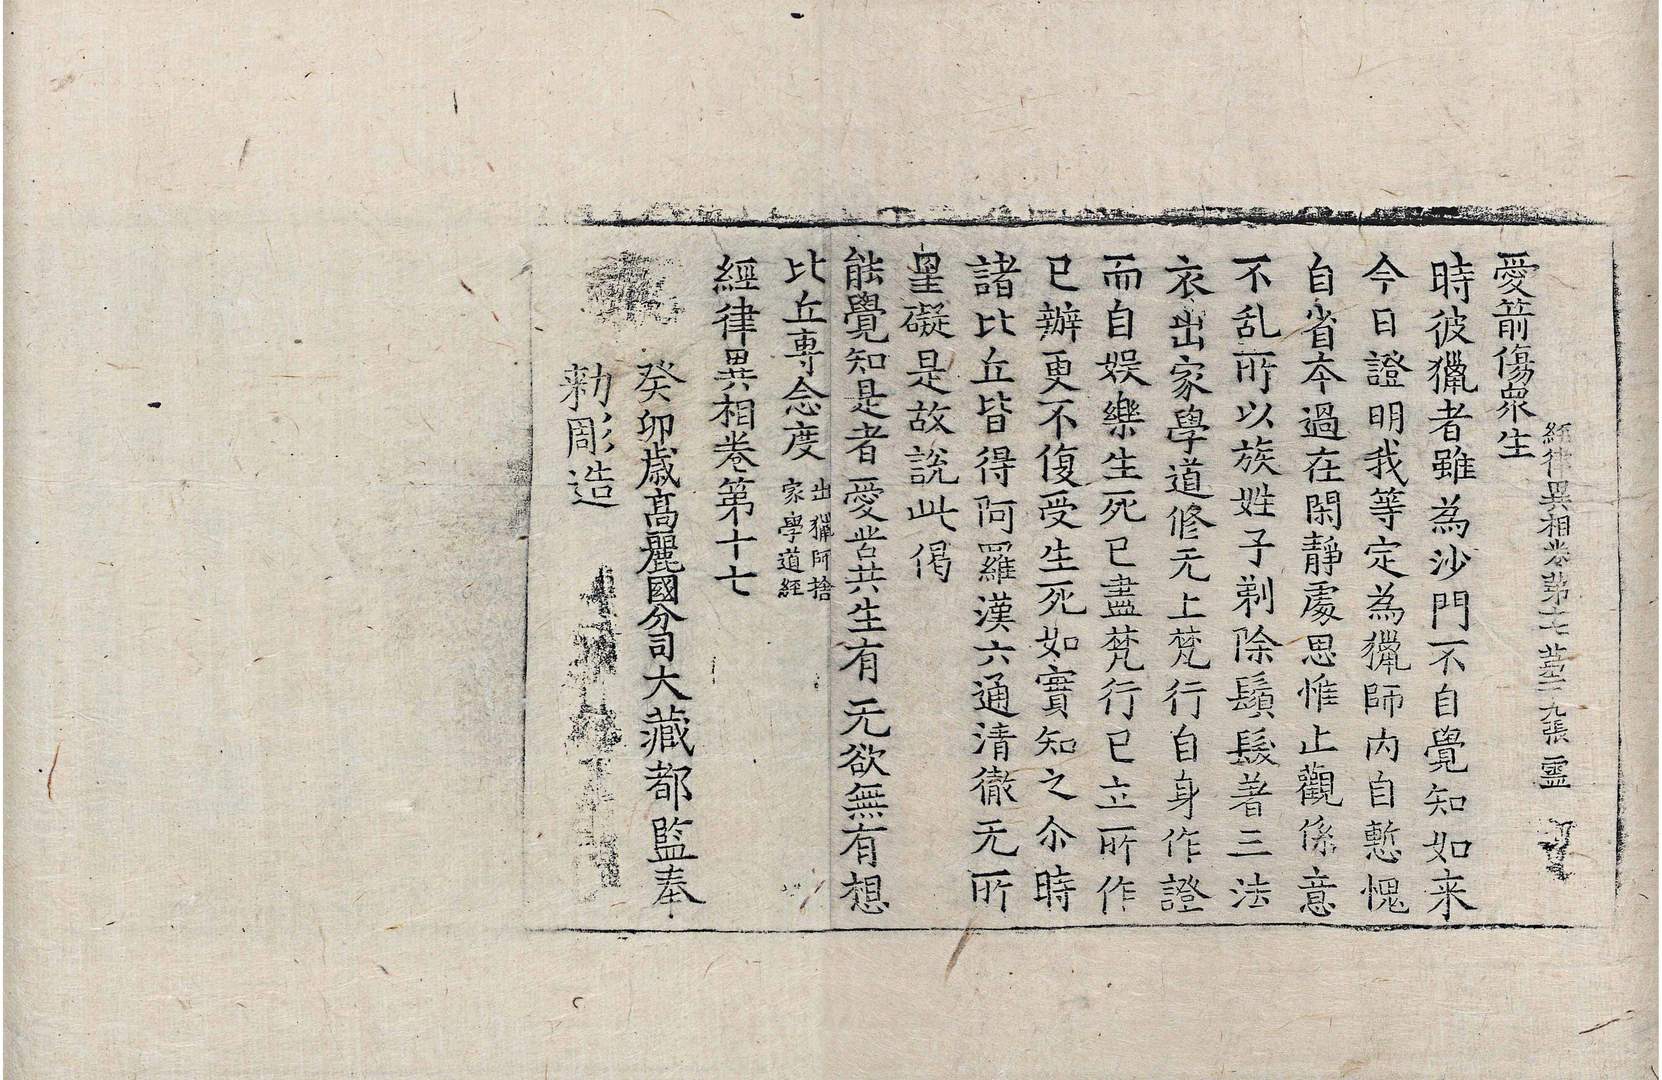 經律異相卷第十七 第二十九張 靈
愛箭傷衆生
時彼獵者雖為沙門不自覺知如来
今日證明我等定為獵師内自慙愧
自省夲過在閑靜處思惟止觀係意
不乱所以族姓子剃除鬚髮著三法
衣出家學道修无上梵行自身作證
而自娯樂生死已盡梵行已立所作
已辦更不復受生死如實知之尒時
諸比丘皆得阿羅漢六通清徹无所
罣礙是故說此偈
能覺知是者 愛苦共生有 无欲無有想
比丘專念度 出獵師捨
家學道經
經律異相卷第十七
癸卯歳高麗國分司大藏都監奉
勅彫造